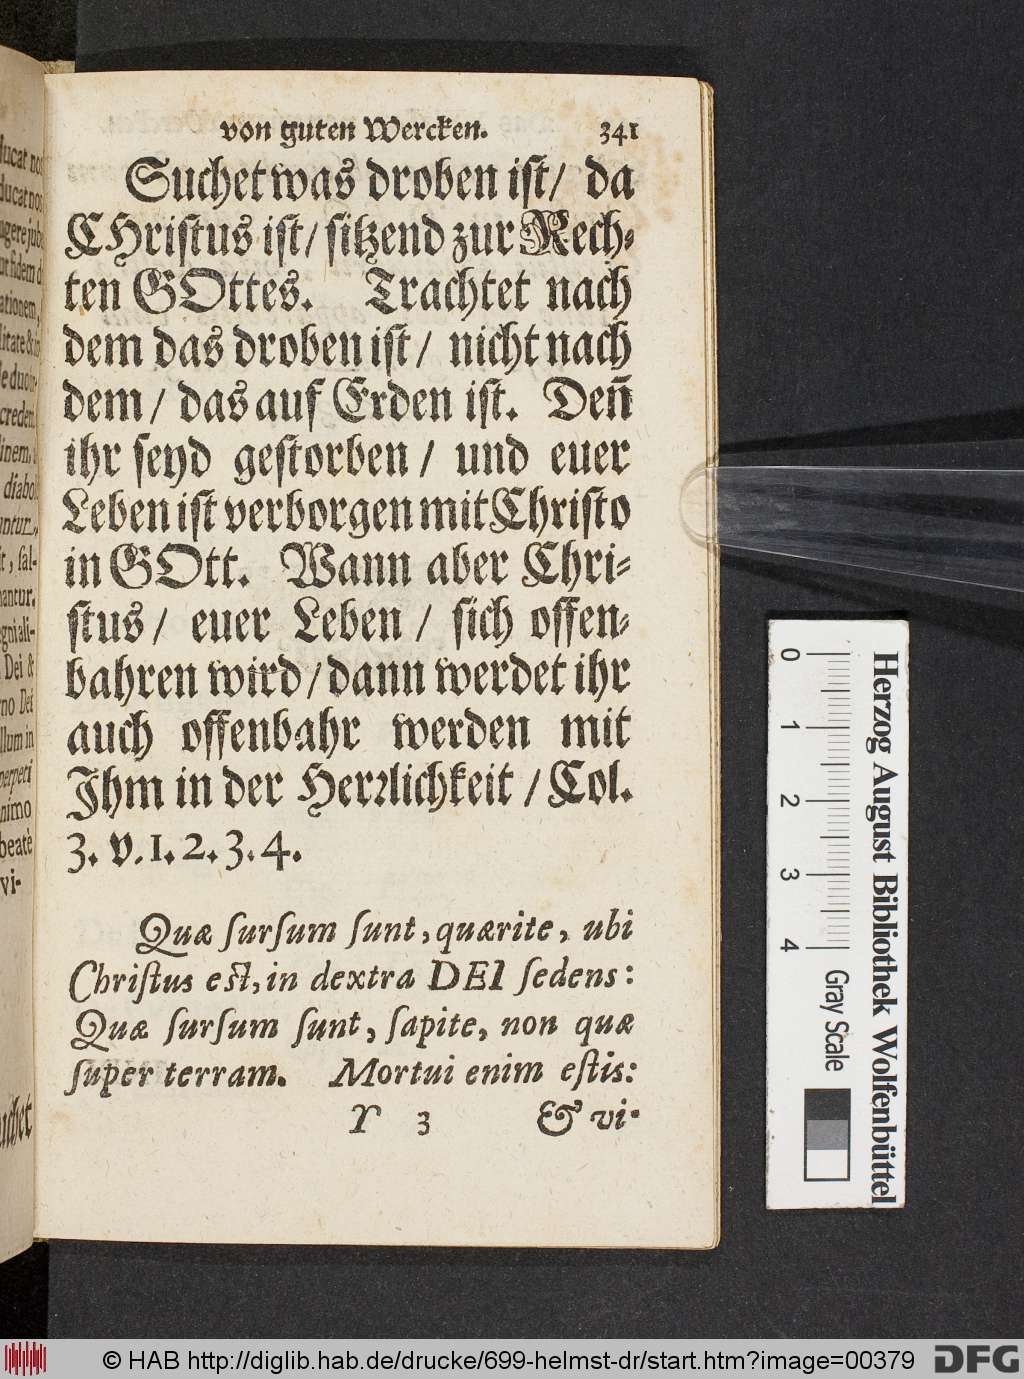 von guten Wercken. 341
Suchet was droben ist/ da
CHristus ist/ sitzend zur Rech-
ten GOttes. Trachtet nach
dem das droben ist/ nicht nach
dem/ das auf Erden ist. Deñ
ihr seyd gestorben/ und euer
Leben ist verborgen mit Christo
in GOtt. Wann aber Chri-
stus/ euer Leben/ sich offen-
bahren wird/ dann werdet ihr
auch offenbahr werden mit
Ihm in der Herꝛlichkeit/ Col.
3. v. 1. 2. 3. 4.
Quæ ſurſum ſunt, quærite, ubi
Chriſtus eſt, in dextra DEI ſedens:
Quæ ſurſum ſunt, ſapite, non quæ
ſuper terram. Mortui enim eſtis:
Y 3 & vi-
ducat nos
ducat nos
credent
diabo
ſal-
Dei &
no Dei
llum in
perpeti
nimo
beatè
vi-
uchet
0 1 2 3 4
Gray Scale
Herzog August Bibliothek Wolfenbüttel
© HAB http://diglib.hab.de/drucke/699-helmst-dr/start.htm?image=00379
DFG